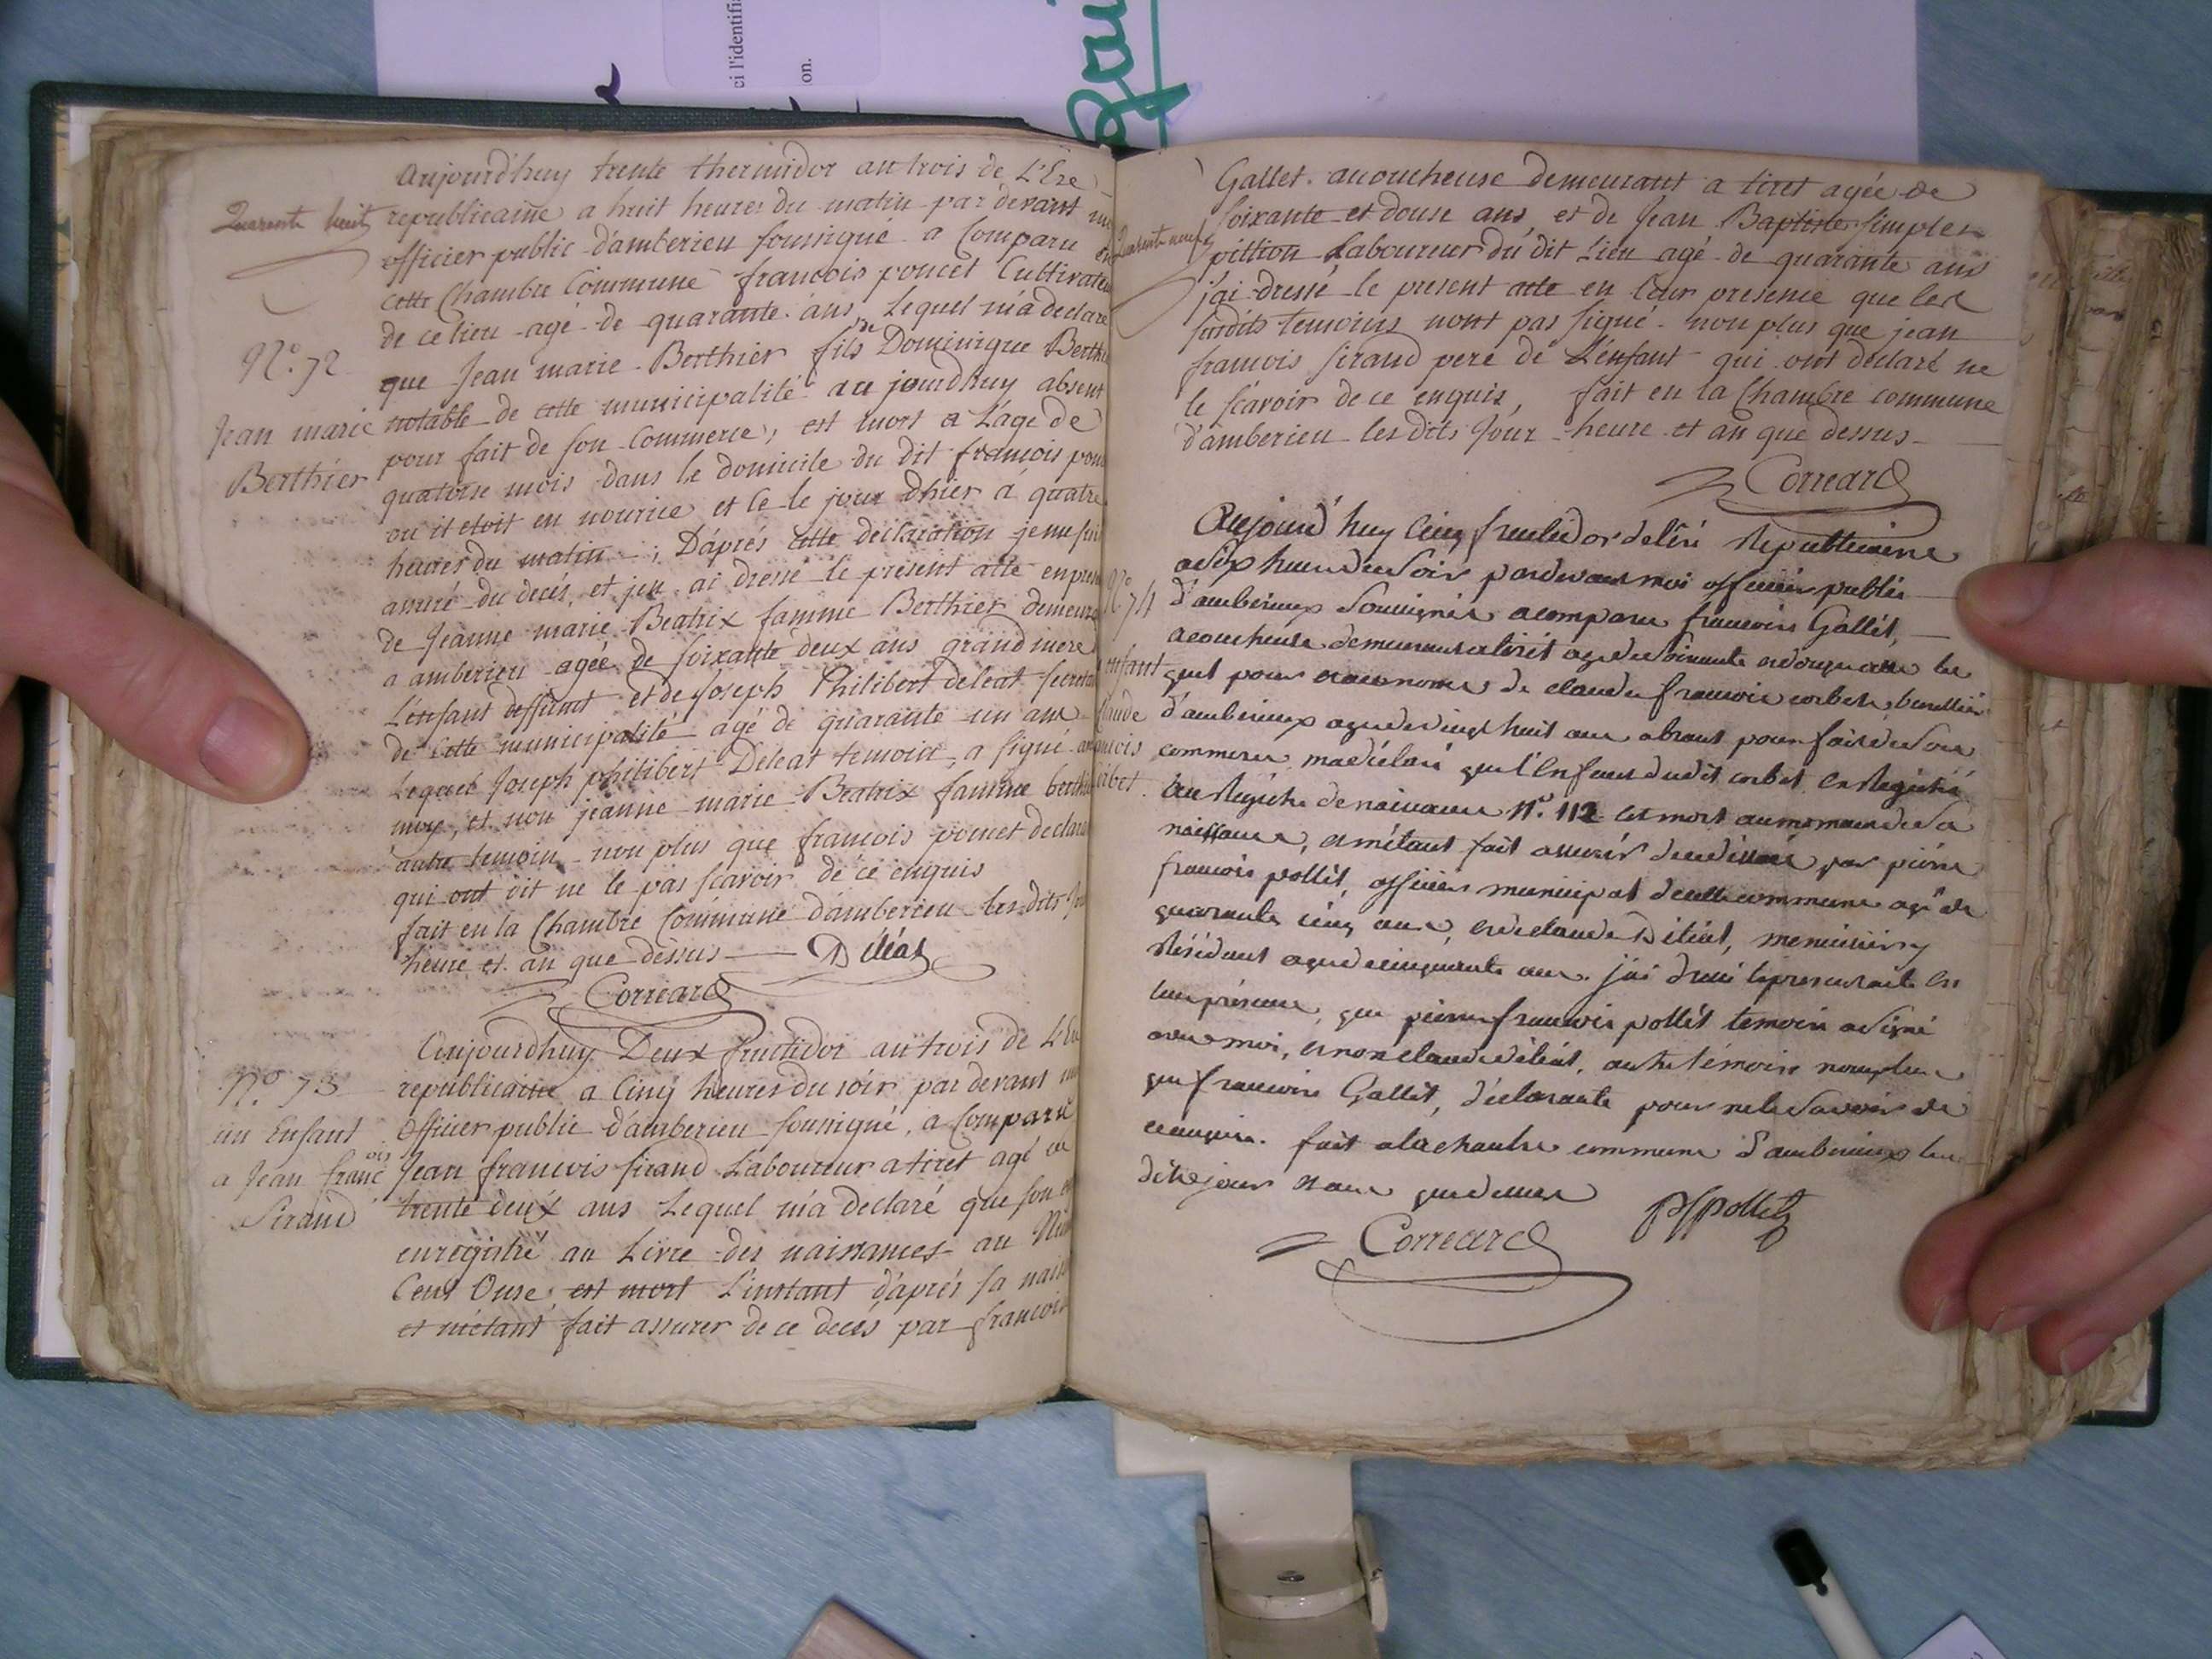 ci l'identifi
on.
Quarente huit
N.º 72
Jean marie
Berthier
aujourd'huy trente thermidor an trois de L'Ere
republicaine a huit heures du matin par devant
officier public d'amberieu soussigné a Comparu en
cette Chambre Commune francois poncet Cultivateu
de ce lieu agé de quarante ans, Lequel m'a declaré
que Jean marie Berthier fils de Dominique Berthi
notable de cette municipalité au jourdhuy absent
pour fait de son Commerce, est mort a L'age de
quatorse mois dans le domicile du dit francois pon
ou il etoit en nourice et ce le jour d'hier a quatre
heures du matin ; D'aprés cette declaration je me sui
assuré du decés, et jen ai dressé le présent atte en pres
de Jeanne marie Beatrix famme Berthier demeura
a amberieu agée de soixante deux ans grand mere
L'enfant deffunt et de Joseph Philibert deléat secretai
de Cette municipalité agé de quarante un ans
Lequel Joseph philibert Deléat temoin a signé
moy, et non jeanne marie Beatrix famme berthi
autre temoin non plus que francois poncet declara
qui ont dit ne le pas scavoir de ce enquis
fait en la Chambre Commune d'amberieu les dits
heure et an que dessus Déléat
Correard
N.º 73
un Enfant
a Jean francois
Sirand
Aujourdhuy Deux fructidor an trois de L'Er
republicaine a Cinq heures du soir par devant
Officier public d'amberieu soussigné, a Comparu
Jean francois sirand Laboureur a tiret agé de
trente deux ans Lequel m'a declaré que son
enregistré au Livre des naissances au Nu
Cent Onse, est mort L'instant d'aprés sa nais
et m'etant fait assurer de ce decés par francois
Quarente neuf
Gallet acoucheuse demeurant a tiret agée de
soixante et douse ans, et de Jean Baptiste simplen
pittion Laboureur du dit Lieu agé de quarante ans
j'ai dressé le present atte en leur presence que les
susdits temoins nont pas signé non plus que jean
francois sirand pere de L'enfant qui ont declaré ne
le scavoir de ce enquis, fait en la Chambre commune
d'amberieu les dits Jour heure et an que dessus
Correard
Nº 74
enfant
Claude
francois
Corbet
Aujourd'huy Cinq fructidor de l'éré Republicaine
a six heures du Soir pardevant moi officier public
d'amberieux Soussigner a comparu francoise Gallét,
acoucheuse demeurant a tirét agée de Soixante et douze ans la
quel pour et au nom de claude francois corbet,
d'amberieux agé de vingt huit ans absent pour fait de Son
commerce m'a déclaré que l'Enfant du dit corbet En Registré
au Registre de naissance N.º 112 est mort au moment de Sa
naissance, et m'étant fait assurér du décés par piérre
francois pollét, officier municipal de cette commune agé de
quarante cinq ans, et de claude Déléat, menuisier y
Résidant agé de cinquante ans. j'ai dressé le present acte en
leur présence, que pierre francois pollét temoin a signé
avec moi, et non claude déléat, autre témoin non plus
que francoise Gallét, déclarante pour ne le Savoir de
ce enquis. fait a la chambre commune d'amberieux les
dits jour et an que dessus
PfPollet
Correard